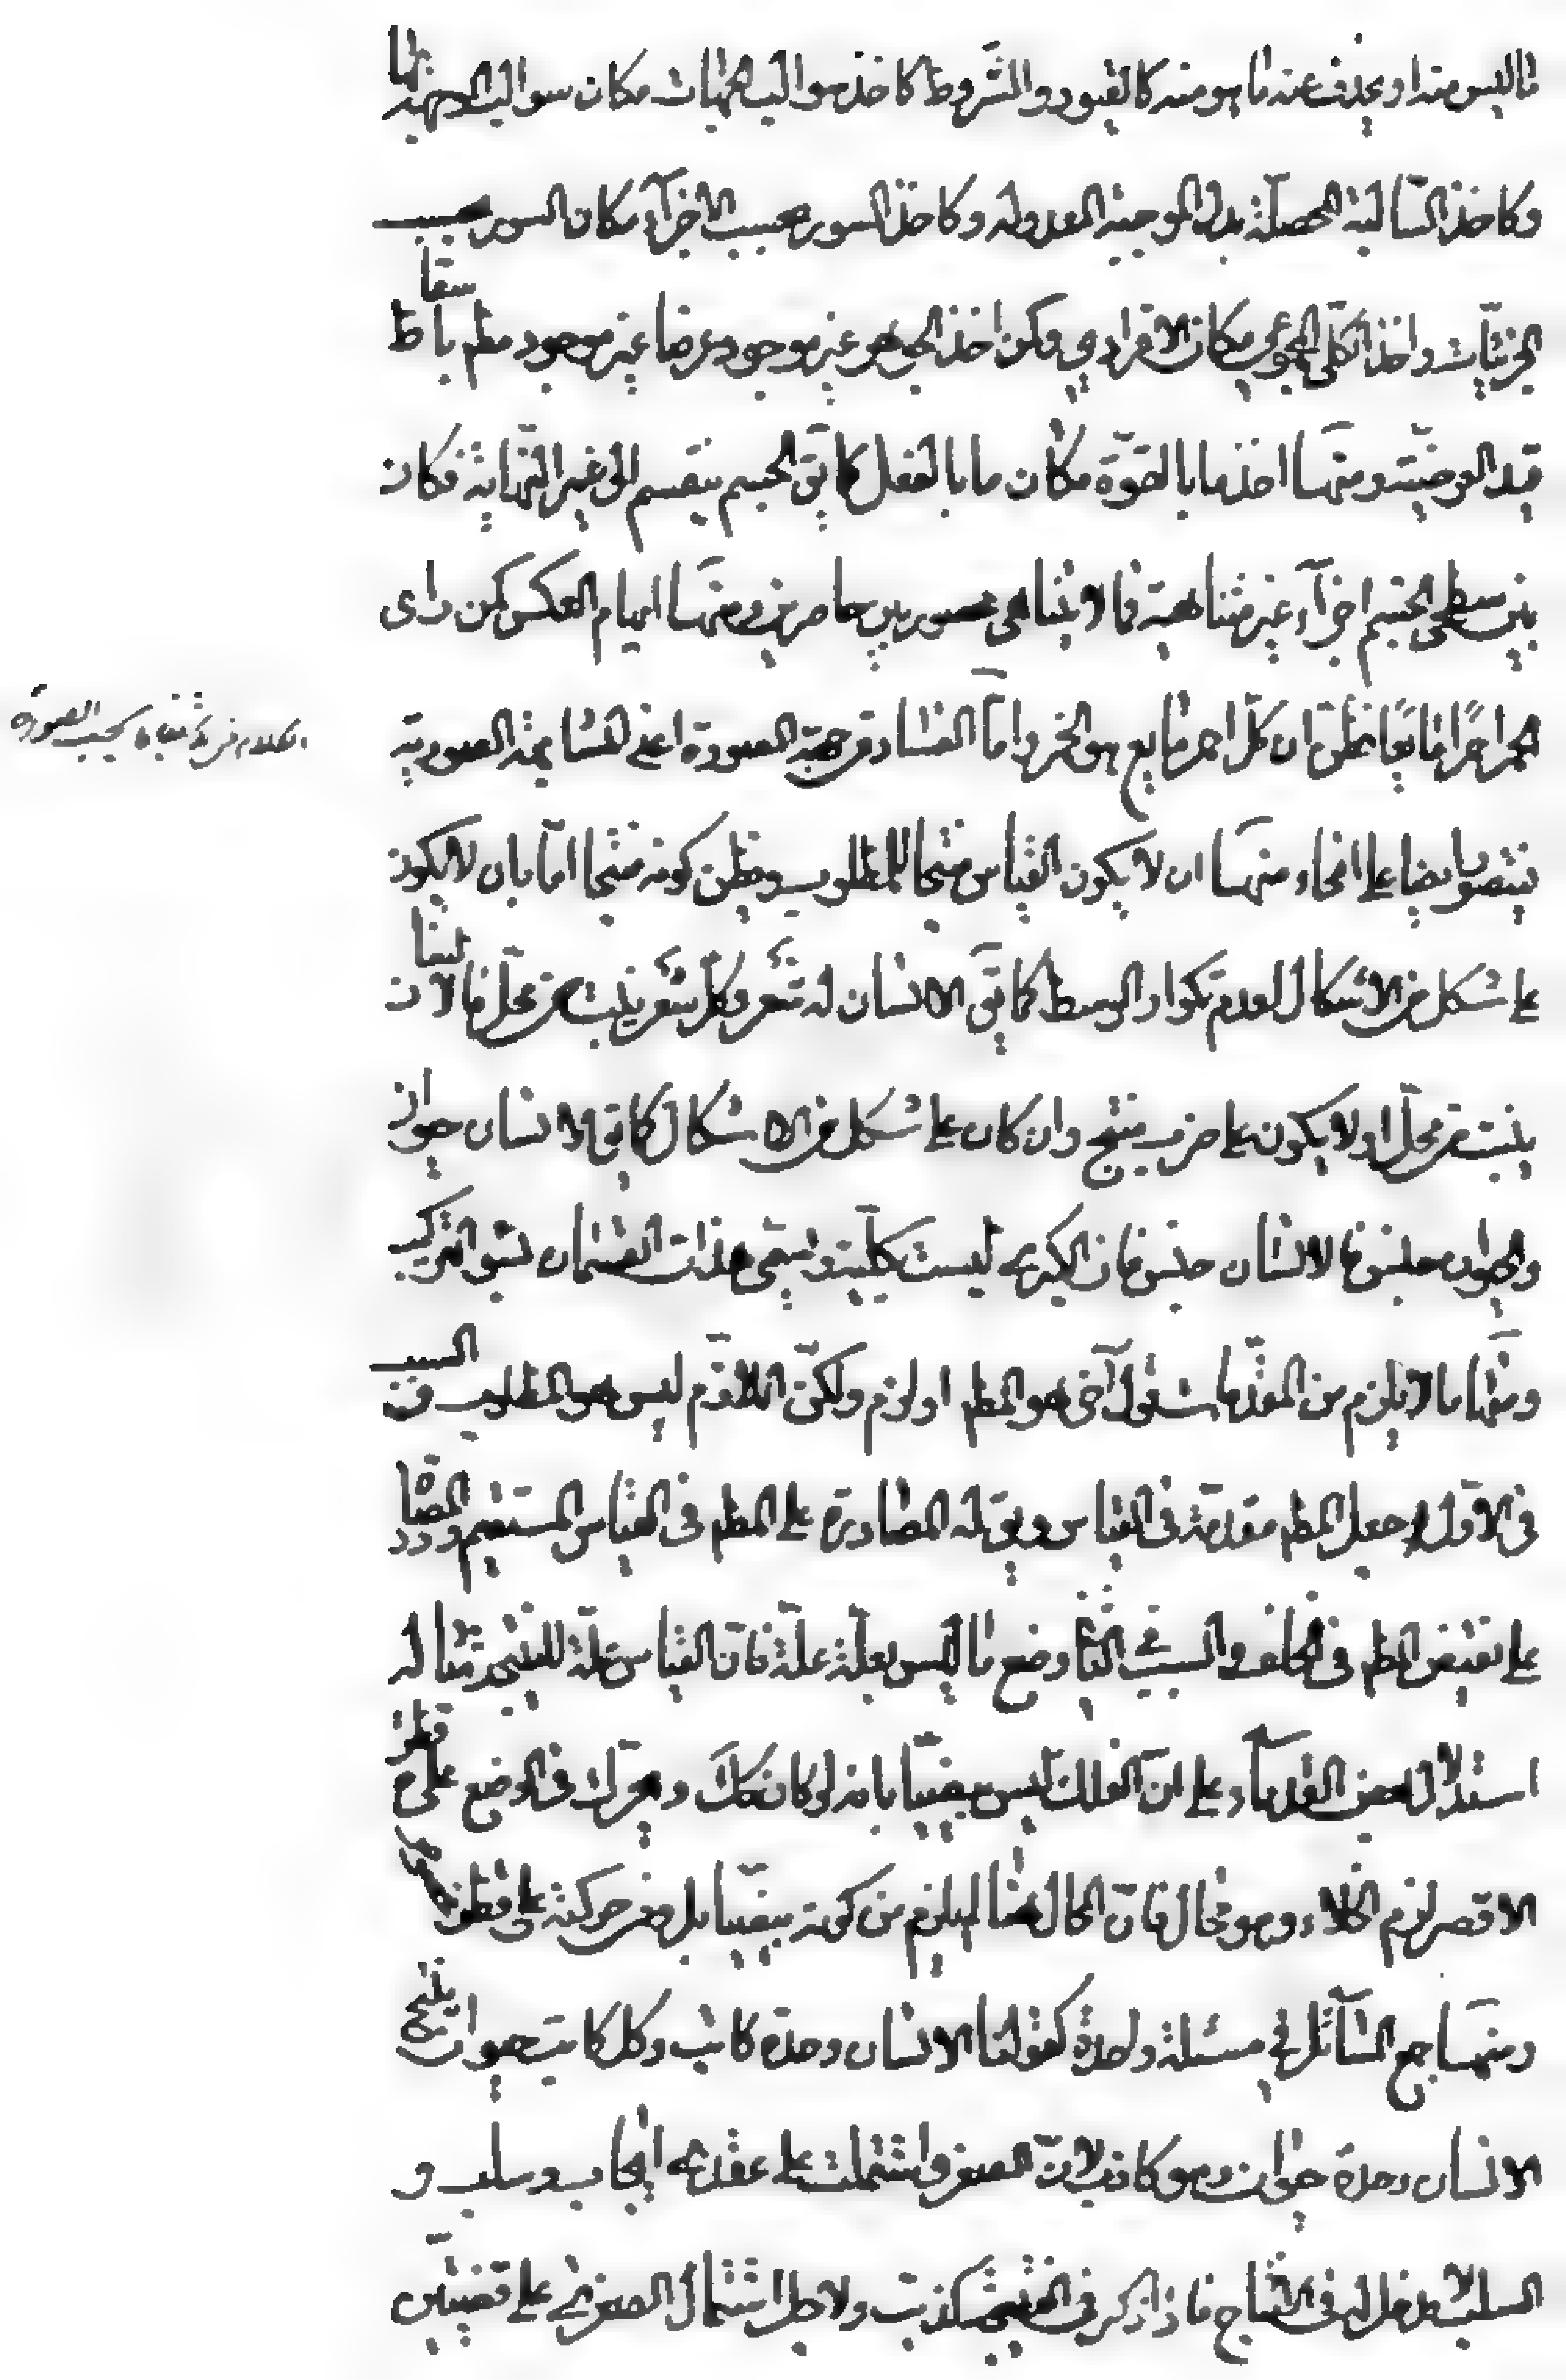 ما ليس منه او يحذف عنه ما هو منه كالقيود والشروط كاخذ سوالب الجهات مكان سوالب الموجهة بها
وكاخذ السالبة المحصلة بدل الموجبة المعدولة وكاخذ السور بحسب الاجزآء مكان السور بحسب
الجزئيات واخذ الكلى المجموعى مكان الافرادى وكمن اخذ الجوهر غير موجود عرضا غير موجود مطم باسقاط
قيد العرضية ومنها اخذ ما بالقوة مكان ما بالفعل كما يق الجسم ينقسم الى غير النهاية فكان
بين سطحى الجسم اجزآء غير متناهية فما لا يتناهى محصور بين حاصرين ومنها ايهام العكس كمن راى
خمرا احمرا مايعا فظن ان كل احمر مايع هو الخمر واما الفساد من جهة الصورة اعنى الفساد الصورية
الكلام فى بحسب الصورة
يتصور ايضا على انحاء منها ان لا يكون القياس منتجا للمطلوب ويظن كونه منتجا اما بان لا يكون
على شكل من الاشكال لعدم تكرار الوسط كما يق الانسان له شعر وكل شعر ينبت من محل فالانسان
ينبت من محل او لا يكون على ضرب منتج وان كان على شكل من الاشكال كما يق الانسان حيوان
والحيوان جنس فالانسان جنس فان الكبرى ليست كلية ويسمى هذان القسمان بسوء التركيب
ومنها ما لا يلزم من المقدمات قول آخر هو المطم او لزم ولكن اللازم ليس هو المطلوب فى السبب
فى الاول جعل المطم مقدمة فى القياس ويق له المصادرة على المطم فى القياس المستقيم والمصادرة
على نقيض المطم فى الخلف والسبب فى الثانى وضع ما ليس بعلة علة فان القياس علة للنتيجة مثاله
استدلال بعض القدمآء على ان الفلك ليس ببيضيا بانه لو كان كك وتحرك فى الوضع على قطره
الاقصر لزم الخلاء وهو محال فان المحال هنا لم يلزم من كونه بيضيا بل مع حركته على قطره
ومنها جمع المسآئل فى مسئلة واحدة كقولنا الانسان وحده كاتب وكل كاتب حيوان ينتج
الانسان وحده حيوان وهو كاذب لان الصغرى اشتملت على عقدى ايجاب وسلب و
السلب لا مدخل له فى الانتاج فاذا ذكر فى النتيجة كذبت ولاجل اشتمال الصغرى على قضيتين